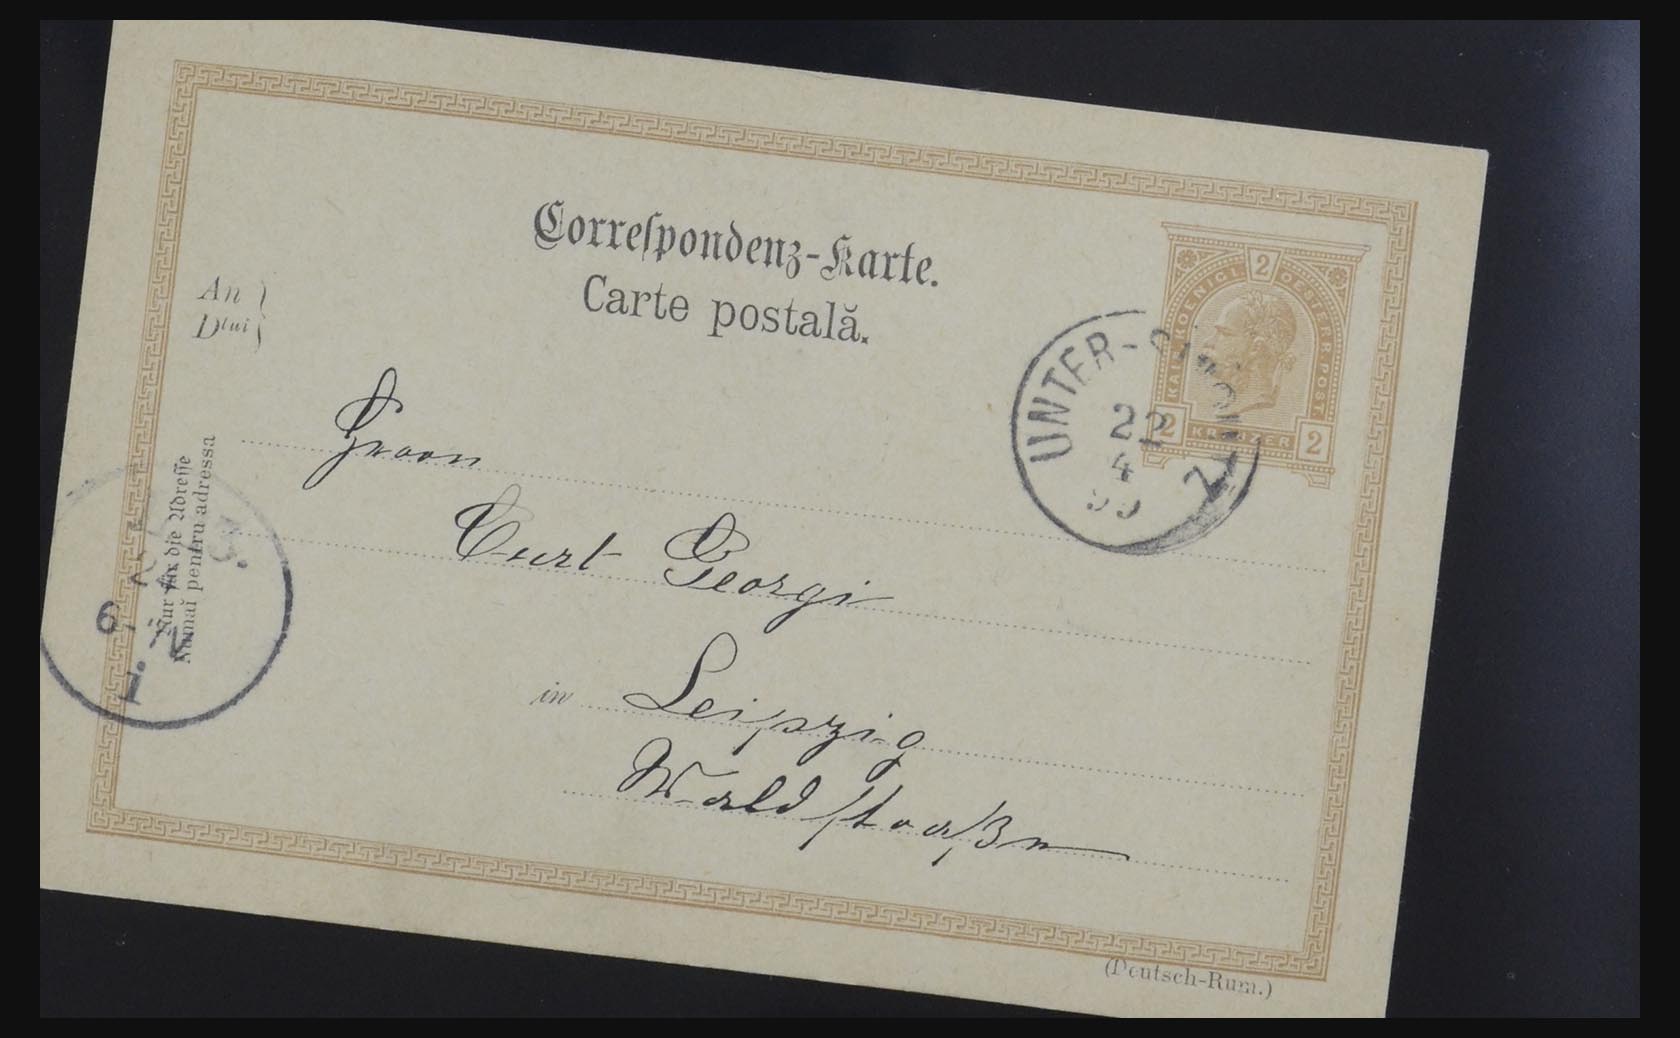 Correſpondenz-Karte.
Carte postală.
An
Dlui
2
KAIS. KOENIGL. OESTERR. POST
2 KREUZER 2
UNTER-
22
4
99
Herrn
Curt Georgi
in Leipzig
Waldstraße
Nur für die Adreſſe
Numaĭ pentru adressa
6-7
1.
(Deutsch-Rum.)